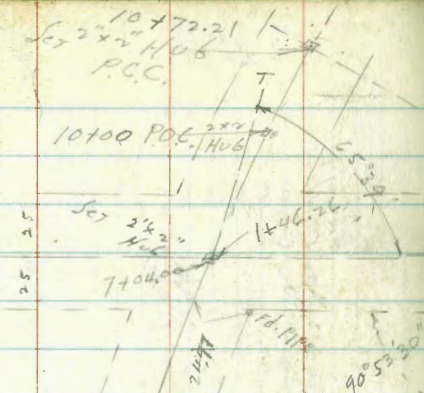 10+72.21
Set 2"x2" HUB
P.C.C.
T
10+00 P.O.C. 2x2 HUB
65°29'
Set 2"x2" HUB
1+46.26
7+04.00
25 25
Fd. Pipe
24.97
90°53'30"